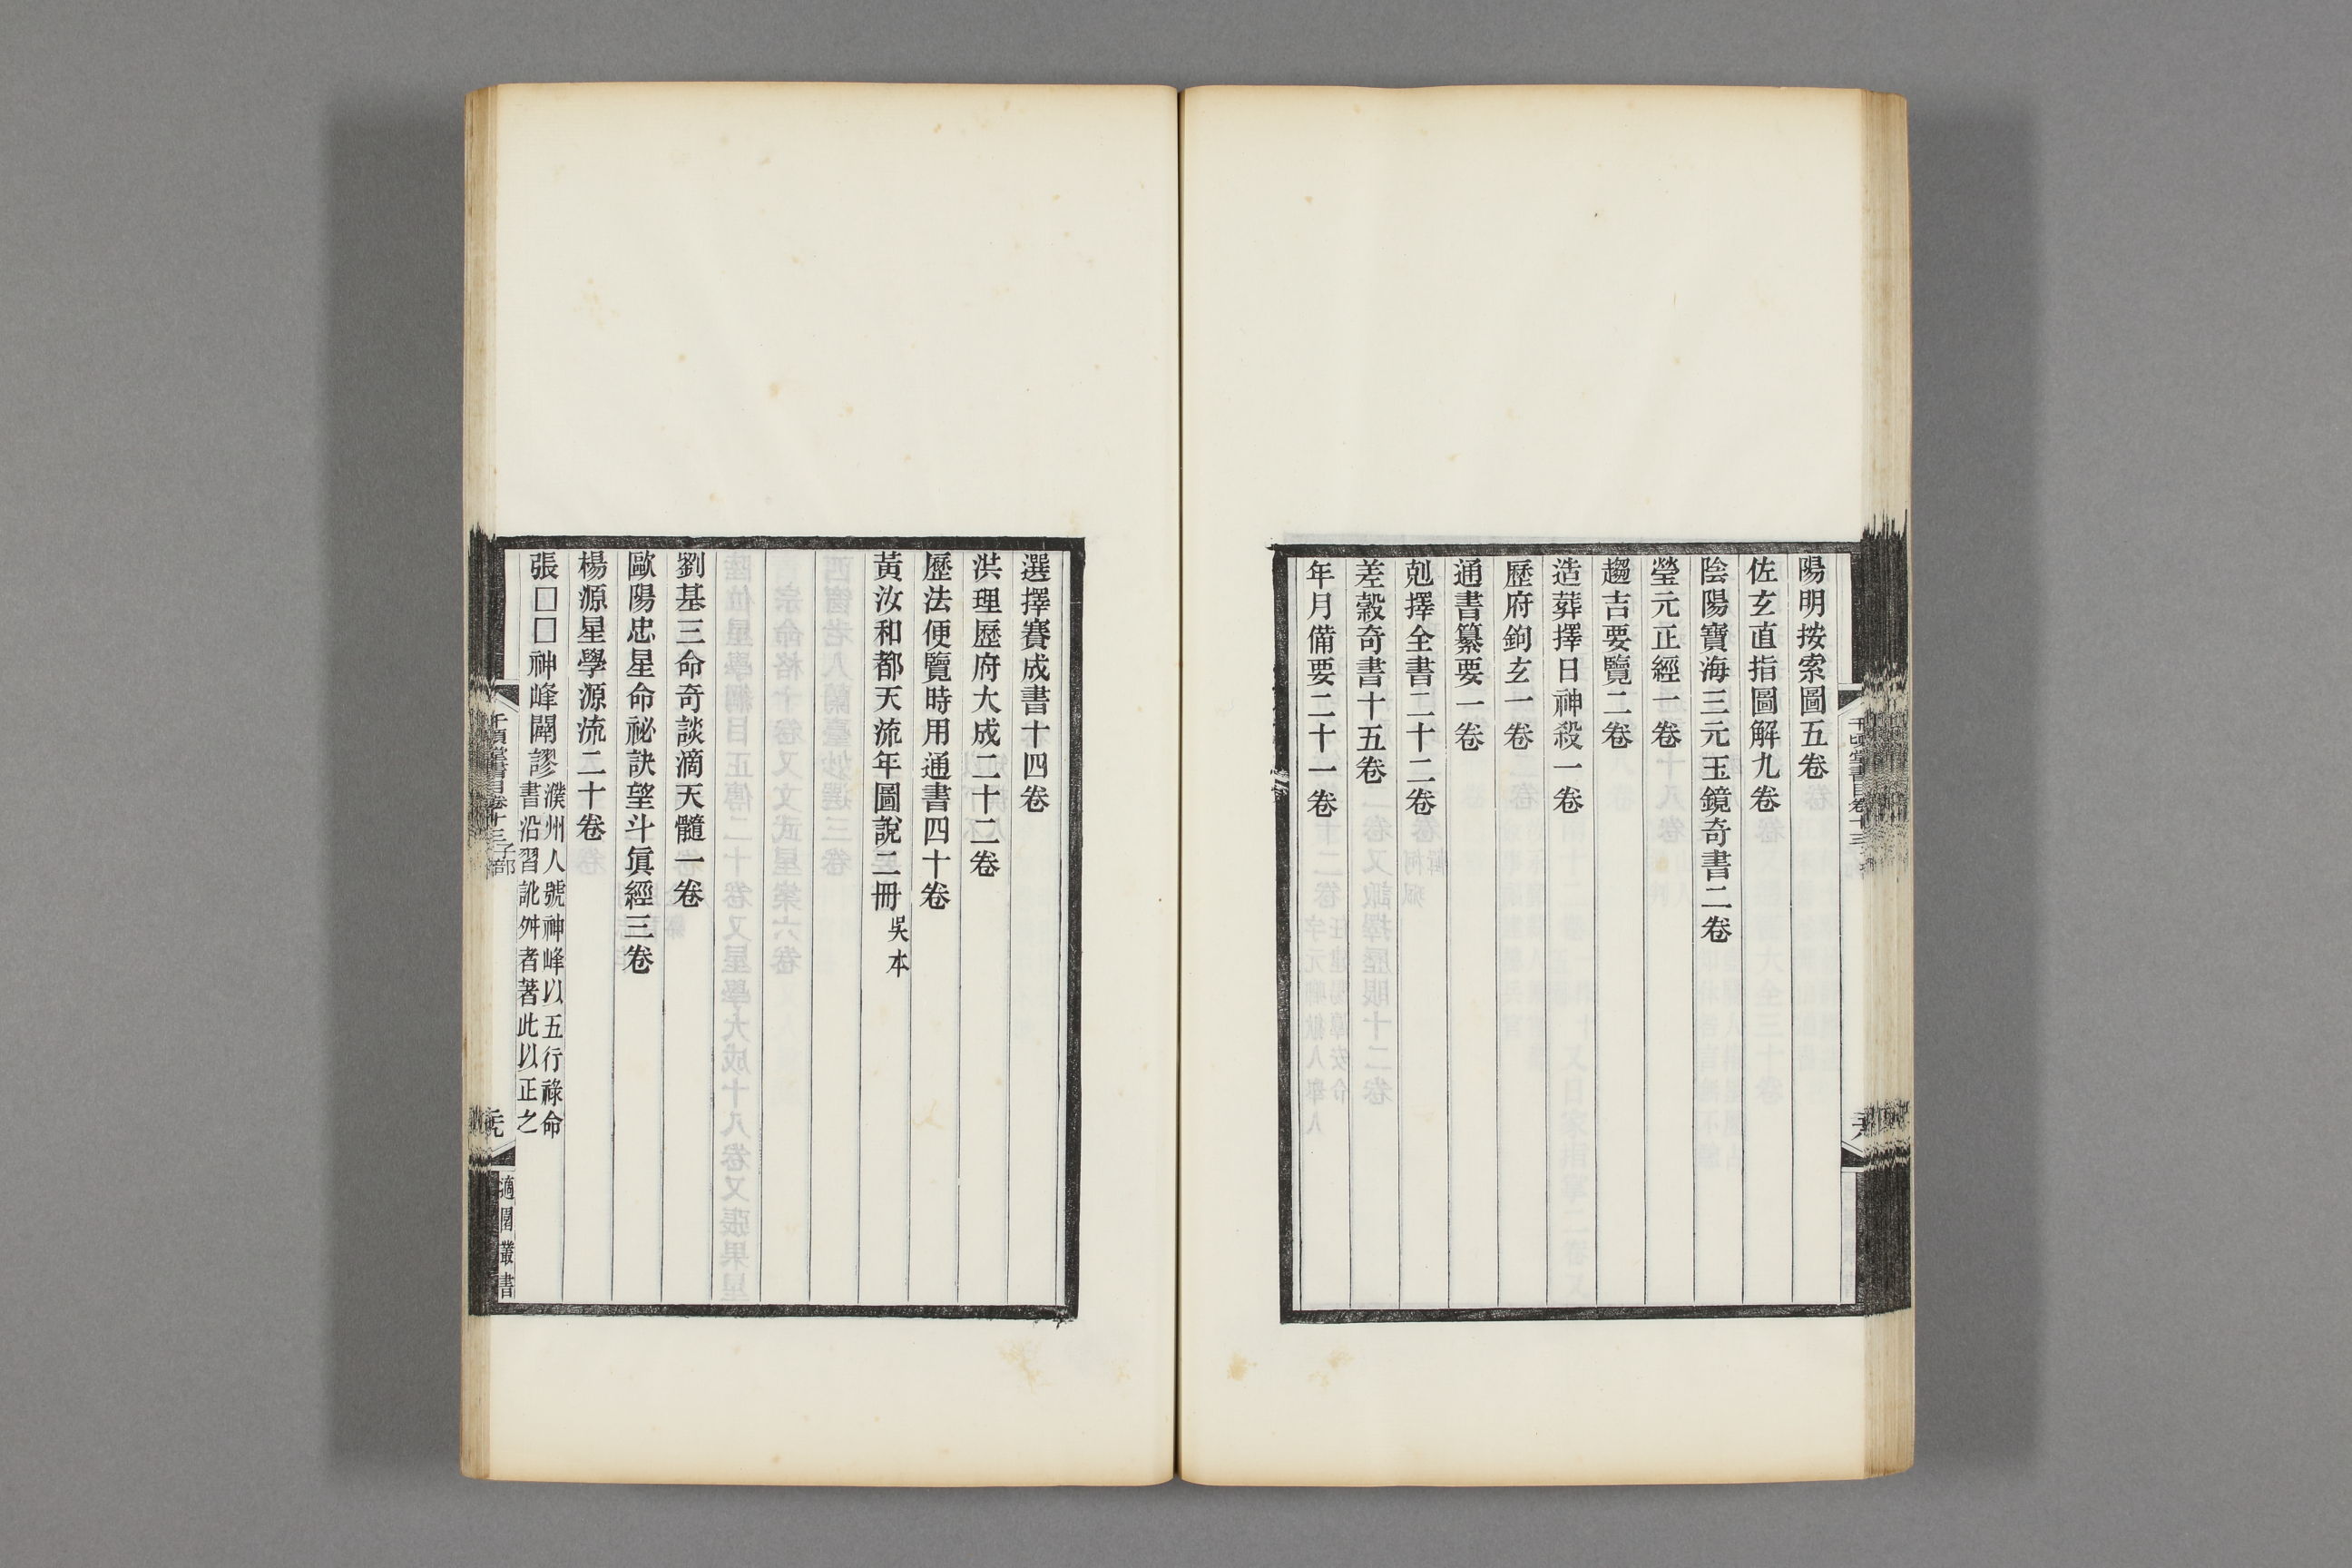 陽明按索圖五卷
佐玄直指圖解九卷
陰陽寶海三元玉鏡奇書二卷
瑩元正經一卷
趨吉要覽二卷
造葬擇日神殺一卷
歷府鉤玄一卷
通書纂要一卷
剋擇全書二十二卷
差穀奇書十五卷
年月備要二十一卷
選擇賽成書十四卷
洪理歷府大成二十二卷
歷法便覽時用通書四十卷
黃汝和都天流年圖說二冊吳本
劉基三命奇談滴天髓一卷
歐陽忠星命祕訣望斗眞經三卷
楊源星學源流二十卷
張□□神峰闢謬濮州人號神峰以五行祿命
書沿習訛舛者著此以正之
千頃堂書目卷十三子部
適園叢書